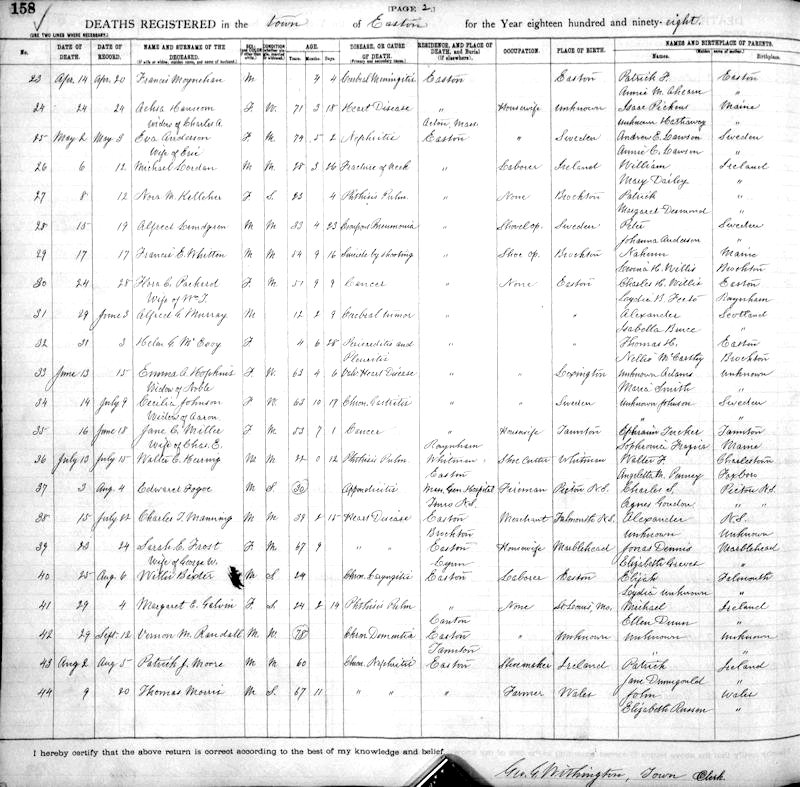 158
[PAGE 2.]
DEATHS REGISTERED in the Town of Easton for the Year eighteen hundred and ninety-eight.
(USE TWO LINES WHERE NECESSARY.)
No. DATE OF DEATH. DATE OF RECORD. NAME AND SURNAME OF THE DECEASED. SEX: CONDITION AGE. Years. Months. Days. DISEASE, OR CAUSE OF DEATH. RESIDENCE, AND PLACE OF DEATH, and Burial (If elsewhere). OCCUPATION. PLACE OF BIRTH. NAMES AND BIRTHPLACE OF PARENTS. Names. Birthplace.
23 Apr. 14 Apr. 20 Francis Moynehan M 4 4 Cerebral Meningitis Easton Easton Patrick F. Easton
Annie M. Ahearn "
24 " 24 " 24 Achsa Hanscom F W. 71 3 18 Heart Disease " Housewife Unknown Isaac Pickens Maine
Widow of Charles A. Acton, Mass. unknown Hathaway "
25 May 2 May 3 Eva Anderson F M. 79 5 2 Nephritis Easton " Sweden Andrew E. Lawson Sweden
Wife of Eric Annie C. Lawson "
26 6 12 Michael Lordan M M. 25 3 26 Fracture of Neck " Laborer Ireland William Ireland
Mary Dailey "
27 8 12 Nora M. Kelleher F S. 23 4 Phthisis Pulm. " None Brockton Patrick "
Margaret Desmond "
28 15 19 Alfred Lundgren M M 33 4 23 Pneumonia " Shovel op. Sweden Peter Sweden
Johanna Anderson "
29 17 17 Francis E. Whitten M M 54 9 16 Suicide by shooting " Shoe op. Brockton Nahum Maine
H. Willis Brockton
30 24 28 Flora C. Packard F M. 51 9 9 Cancer " None Easton Charles H. Willis Easton
Wife of Wm. T. Loydia B. Raynham
31 29 June 3 Alfred G. Murray M 12 2 9 Cerebral tumor " " " Alexander Scotland
Isabella Bruce "
32 31 3 Helen G. McEvoy F 4 6 28 Pericarditis and " " Thomas H. Easton
Pleuritis Nellie McCarthy Brockton
33 June 13 15 Emma A. Hopkins F W. 63 4 6 Valv. Heart Disease " " Lexington unknown Adams unknown
Widow of Noble Maria Smith "
34 14 July 9 Cecilia Johnson F W. 63 10 17 Chron. " " Sweden unknown Johnson Sweden
Widow of Aaron " "
35 16 June 18 Jane C. Miller F M. 53 7 1 Cancer " Housewife Taunton Ephraim Tucker Taunton
Wife of Chas. E. Raynham Sophronia Frazier Maine
36 July 13 July 15 Walter E. M M. 22 0 12 Phthisis Pulm Whitman Shoe Cutter Whitman Walter F. Charlestown
Easton Angeletta M. Foxboro
37 3 Aug. 4 Edward Fogoe M S. 30 Appendicitis Mass. Gen. Hospital Fireman Pictou N.S. Charles S. Pictou N.S.
Truro N.S. Agnes Gordon " "
38 15 July 22 Charles T. Manning M M. 39 2 15 Heart Disease Easton Merchant Falmouth N.S. Alexander N.S.
Brockton unknown Unknown
39 23 24 Sarah E. Frost F M. 67 9 " " Easton Housewife Marblehead Jonas Dennis Marblehead
Wife of George W. Lynn Elizabeth Graves "
40 25 Aug. 6 Willis Baxter M S. 24 Chron. Laryngitis Easton Laborer Easton Elijah Falmouth
Lydia unknown "
41 29 4 Margaret E. Galvin F S. 24 2 14 Phthisis Pulm " None St. Louis, Mo. Michael Ireland
Canton Ellen Dunn "
42 29 Sept. 12 Vernon M. Randall M M. 78 Chron Dementia Easton " Unknown Unknown Unknown
Taunton " "
43 Aug 2 Aug 5 Patrick J. Moore M M. 60 Chron. Nephritis Easton Shoemaker Ireland Patrick Ireland
Jane "
44 9 20 Thomas Morris M S. 67 11 " " " Farmer Wales John Wales
Elizabeth "
I hereby certify that the above return is correct according to the best of my knowledge and belief.
Geo. G. Withington, Town Clerk.